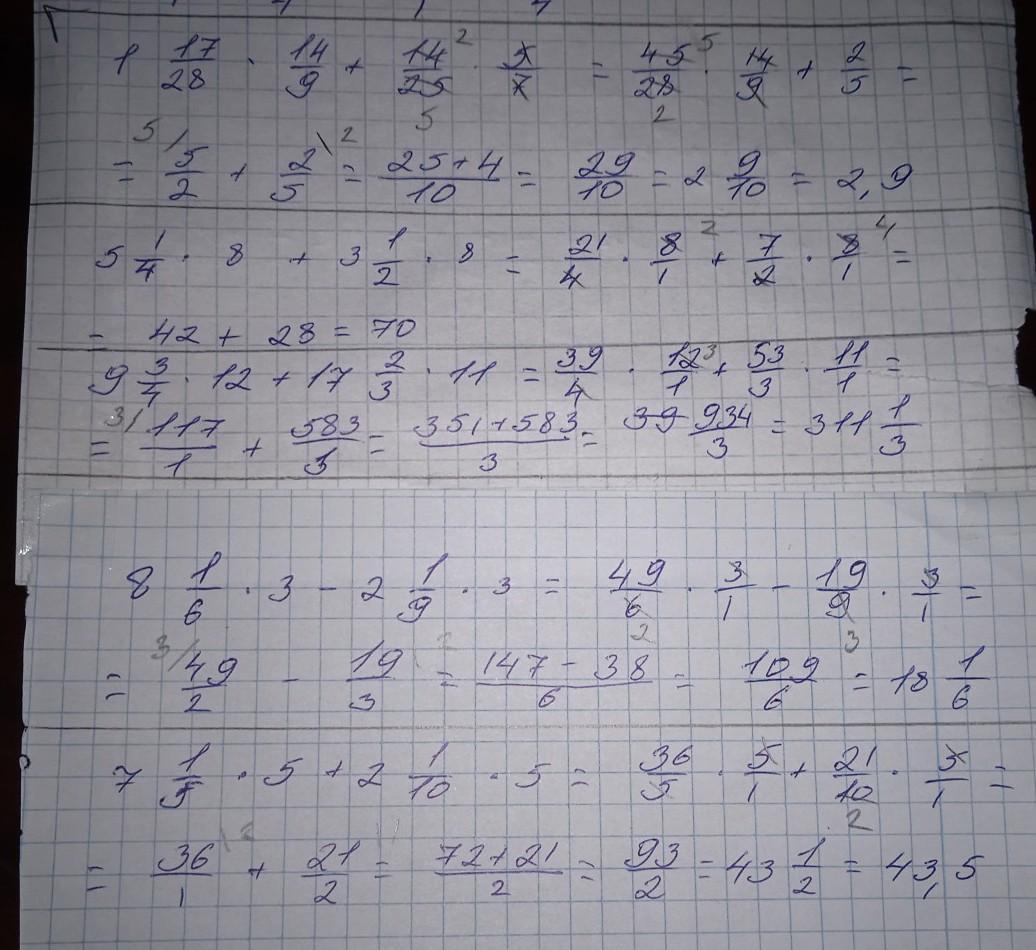 1 17/28 · 14/9 + 14/25 · 5/7 = 45/28 · 14/9 + 2/5 =
= 5/2 + 2/5 = 25+4/10 = 29/10 = 2 9/10 = 2,9
5 1/4 · 8 + 3 1/2 · 8 = 21/4 · 8/1 + 7/2 · 8/1 =
= 42 + 28 = 70
9 3/4 · 12 + 17 2/3 · 11 = 39/4 · 12/1 + 53/3 · 11/1 =
= 117/1 + 583/3 = 351+583/3 = 39 934/3 = 311 1/3
8 1/6 · 3 - 2 1/9 · 3 = 49/6 · 3/1 - 19/9 · 3/1 =
= 49/2 - 19/3 = 147-38/6 = 109/6 = 18 1/6
7 1/5 · 5 + 2 1/10 · 5 = 36/5 · 5/1 + 21/10 · 5/1 =
= 36/1 + 21/2 = 72+21/2 = 93/2 = 43 1/2 = 43,5